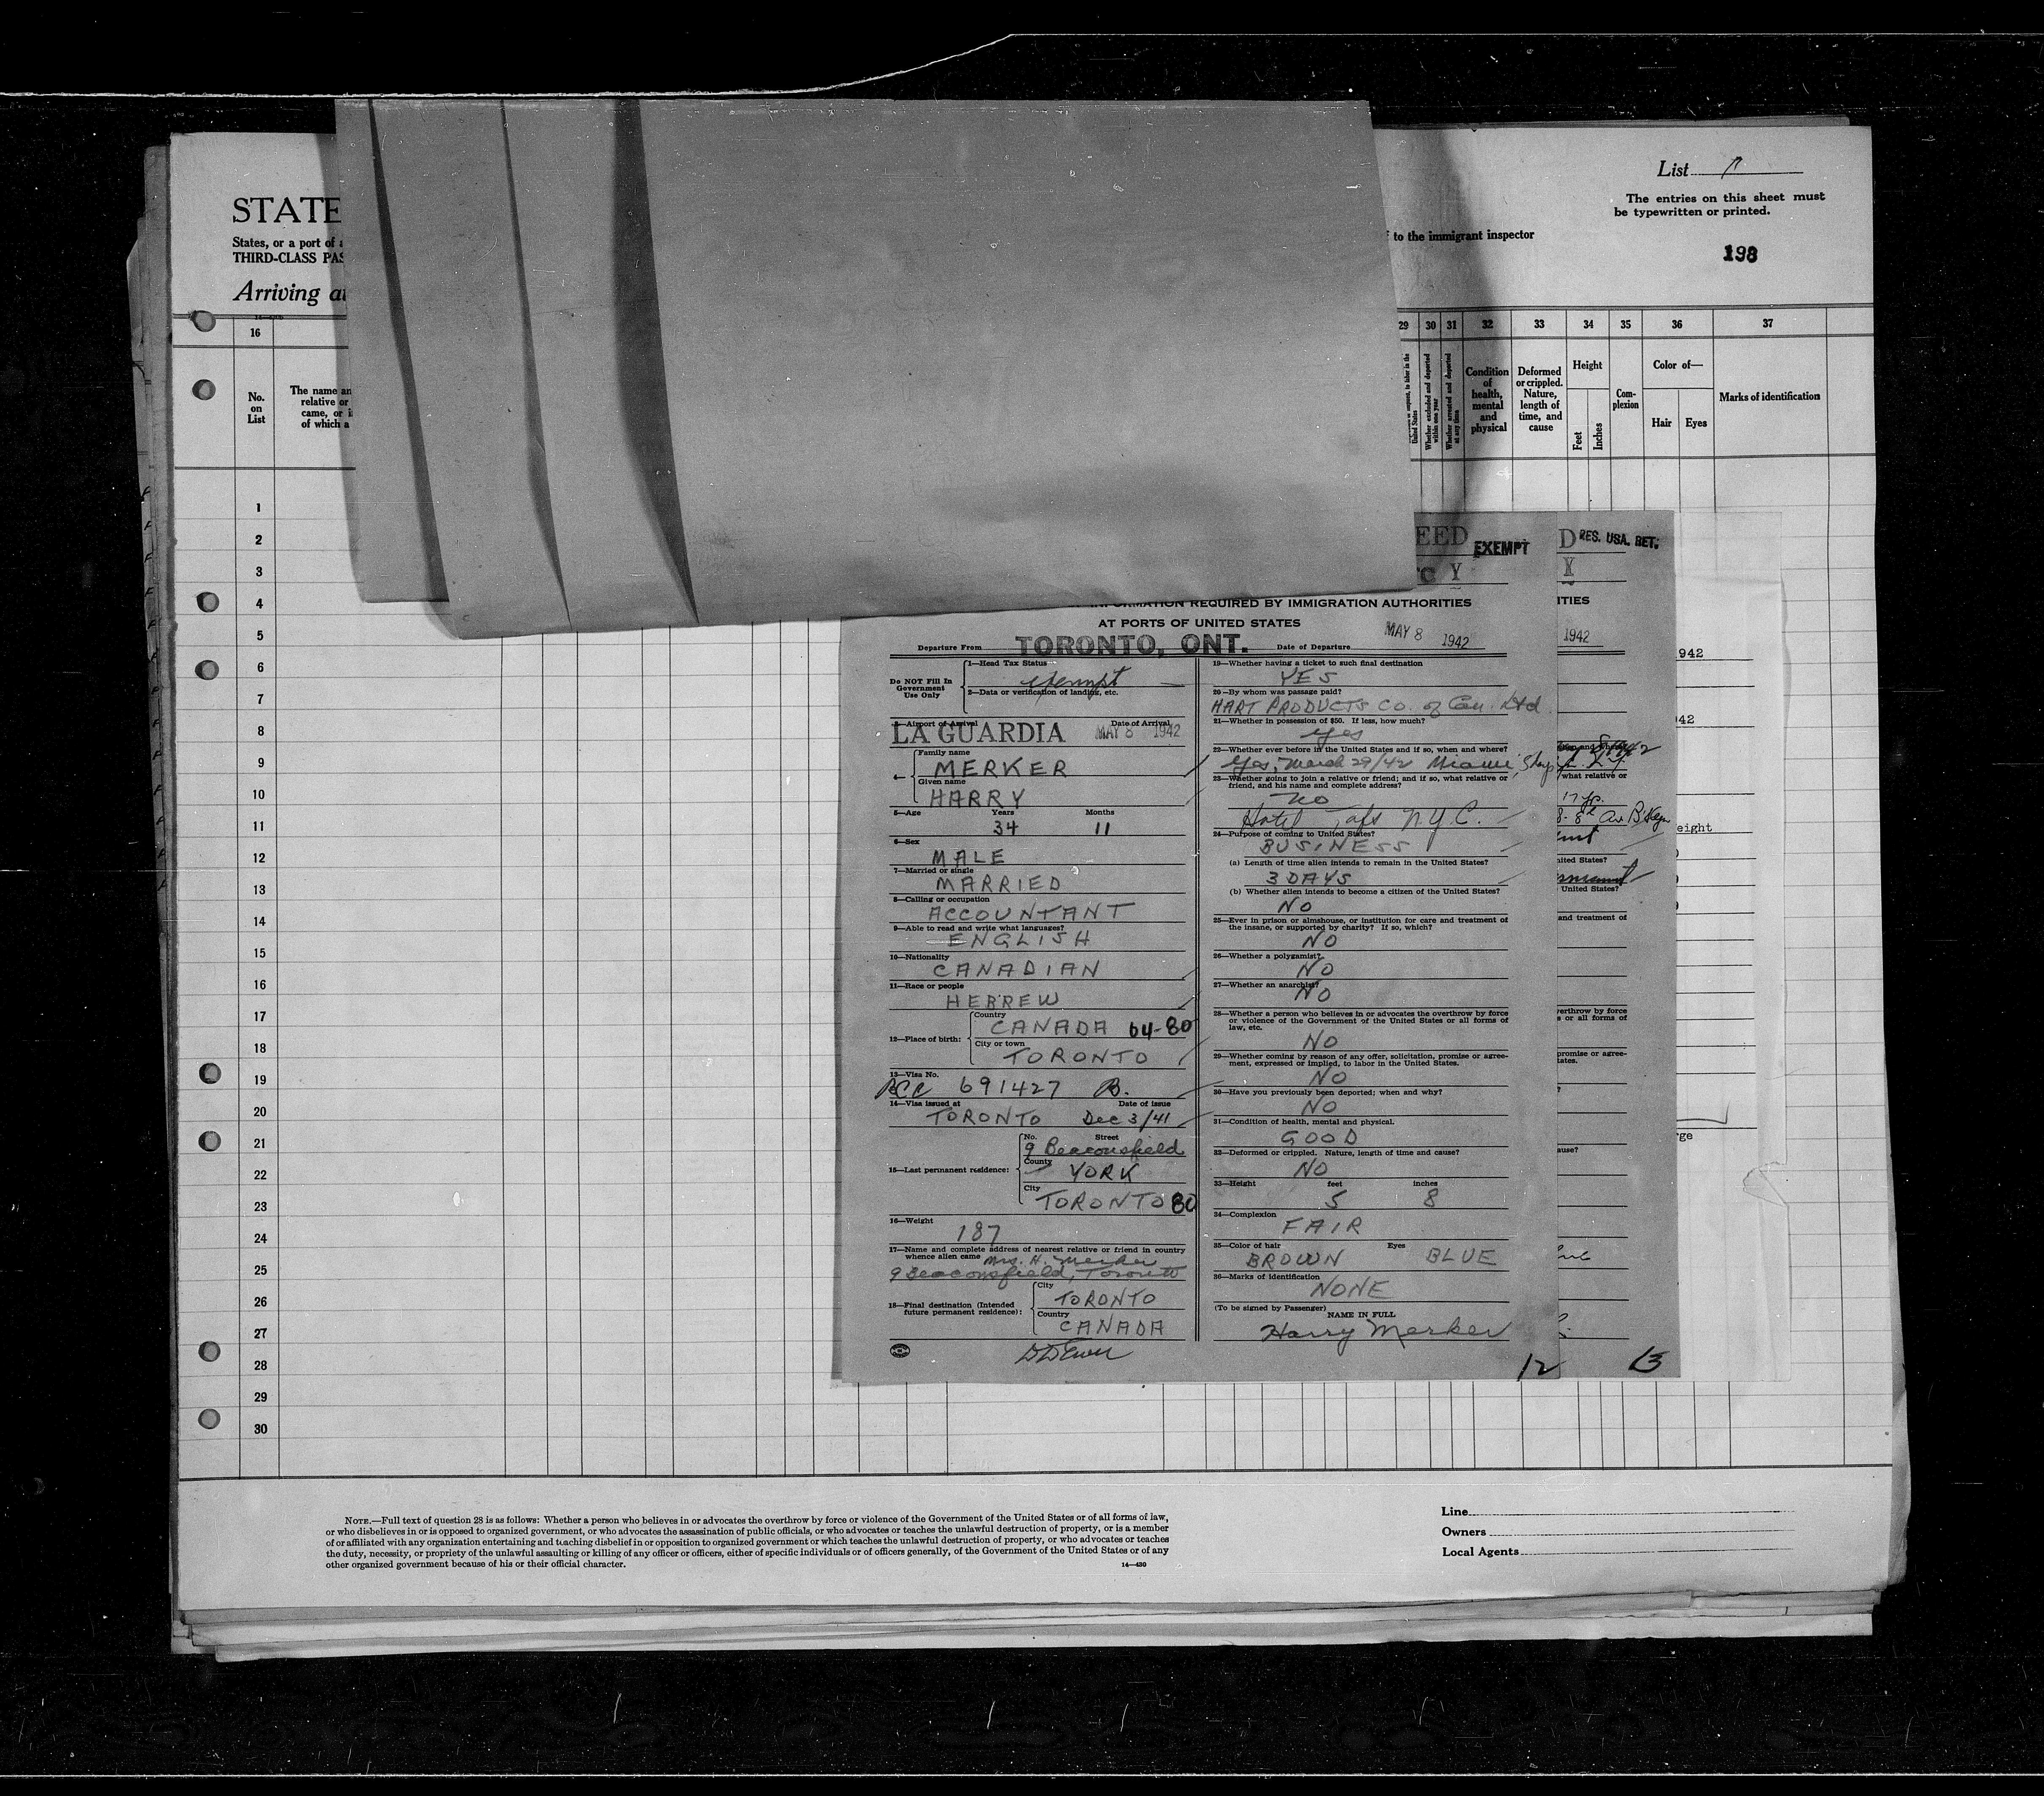 List
The entries on this sheet must
be typewritten or printed.
198
STATE
States, or a port of
THIRD-CLASS PAS
Arriving at
to the immigrant inspector
16
29 30 31 32 33 34 35 36 37
No.
on
List
The name an
relative or
came, or i
of which a
United States
Whether excluded and deported
within one year
Whether arrested and deported
at any time
Condition
of
health,
mental
and
physical
Deformed
or crippled.
Nature,
length of
time, and
cause
Height
Feet
Inches
Com-
plexion
Color of—
Hair Eyes
Marks of identification
1
2
3
4
5
6
7
8
9
10
11
12
13
14
15
16
17
18
19
20
21
22
23
24
25
26
27
28
29
30
EED EXEMPT
Y
INFORMATION REQUIRED BY IMMIGRATION AUTHORITIES
AT PORTS OF UNITED STATES
Departure From TORONTO, ONT. Date of Departure MAY 8 1942
Do NOT Fill In
Government
Use Only
1—Head Tax Status
exempt
2—Data or verification of landing, etc.
3—Airport of Arrival Date of Arrival
LA GUARDIA MAY 8 1942
4—
Family name
MERKER
Given name
HARRY
5—Age Years Months
34 11
6—Sex
MALE
7—Married or single
MARRIED
8—Calling or occupation
ACCOUNTANT
9—Able to read and write what languages?
ENGLISH
10—Nationality
CANADIAN
11—Race or people
HEBREW
12—Place of birth:
Country
CANADA 64-80
City or town
TORONTO
13—Visa No.
RCC 691427 B.
14—Visa issued at Date of issue
TORONTO Dec 3/41
15—Last permanent residence:
No. Street
9 Beaconsfield
County
YORK
City
TORONTO 80
16—Weight
187
17—Name and complete address of nearest relative or friend in country
whence alien came Mrs. H. Merker
9 Beaconsfield, Toronto
18—Final destination (Intended
future permanent residence):
City
TORONTO
Country
CANADA
19—Whether having a ticket to such final destination
YES
20—By whom was passage paid?
HART PRODUCTS CO. of Can. Ltd.
21—Whether in possession of $50. If less, how much?
yes
22—Whether ever before in the United States and if so, when and where?
Yes, March 29/42 Miami,
23—Whether going to join a relative or friend; and if so, what relative or
friend, and his name and complete address?
no
Hotel Taft N.Y.C.
24—Purpose of coming to United States?
BUSINESS
(a) Length of time alien intends to remain in the United States?
3 DAYS
(b) Whether alien intends to become a citizen of the United States?
NO
25—Ever in prison or almshouse, or institution for care and treatment of
the insane, or supported by charity? If so, which?
NO
26—Whether a polygamist?
NO
27—Whether an anarchist?
NO
28—Whether a person who believes in or advocates the overthrow by force
or violence of the Government of the United States or all forms of
law, etc.
NO
29—Whether coming by reason of any offer, solicitation, promise or agree-
ment, expressed or implied, to labor in the United States.
NO
30—Have you previously been deported; when and why?
NO
31—Condition of health, mental and physical.
GOOD
32—Deformed or crippled. Nature, length of time and cause?
NO
33—Height feet inches
5 8
34—Complexion
FAIR
35—Color of hair Eyes
BROWN BLUE
36—Marks of identification
NONE
(To be signed by Passenger)
NAME IN FULL
Harry Merker
12
D RES. USA. RET.
ITIES
1942
what relative or
17 yr.
United States?
United States?
and treatment of
verthrow by force
s or all forms of
promise or agree-
tates.
ause?
13
942
42
eight
rge
NOTE.—Full text of question 28 is as follows: Whether a person who believes in or advocates the overthrow by force or violence of the Government of the United States or of all forms of law,
or who disbelieves in or is opposed to organized government, or who advocates the assassination of public officials, or who advocates or teaches the unlawful destruction of property, or is a member
of or affiliated with any organization entertaining and teaching disbelief in or opposition to organized government or which teaches the unlawful destruction of property, or who advocates or teaches
the duty, necessity, or propriety of the unlawful assaulting or killing of any officer or officers, either of specific individuals or of officers generally, of the Government of the United States or of any
other organized government because of his or their official character. 14—430
Line
Owners
Local Agents